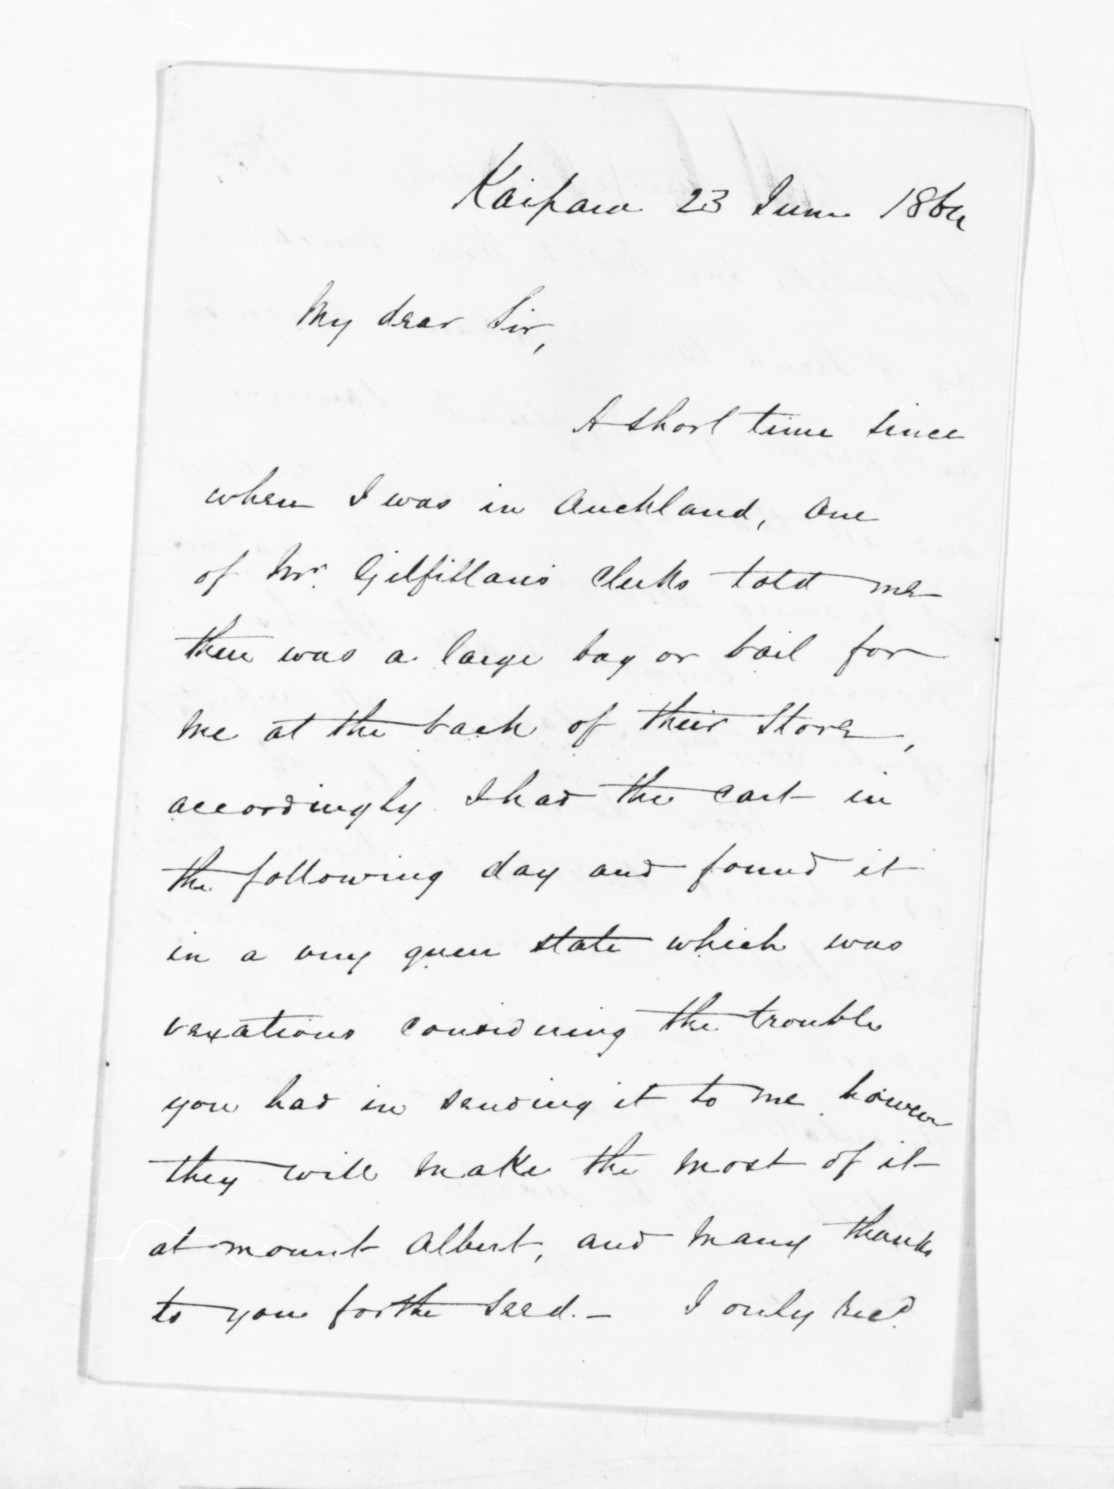 Kaipara 23 June 1864
My dear Sir,
A short time since
when I was in Auckland, one
of Mr. Gilfillan's clerks told me
there was a large bag or bail for
me at the back of their Store,
accordingly I had the cart in
the following day and found it
in a very queer state which was
vexatious considering the trouble
you had in sending it to me however
they will make the most of it
at mount Albert, and many thanks
to you for the seed. - I only recd.